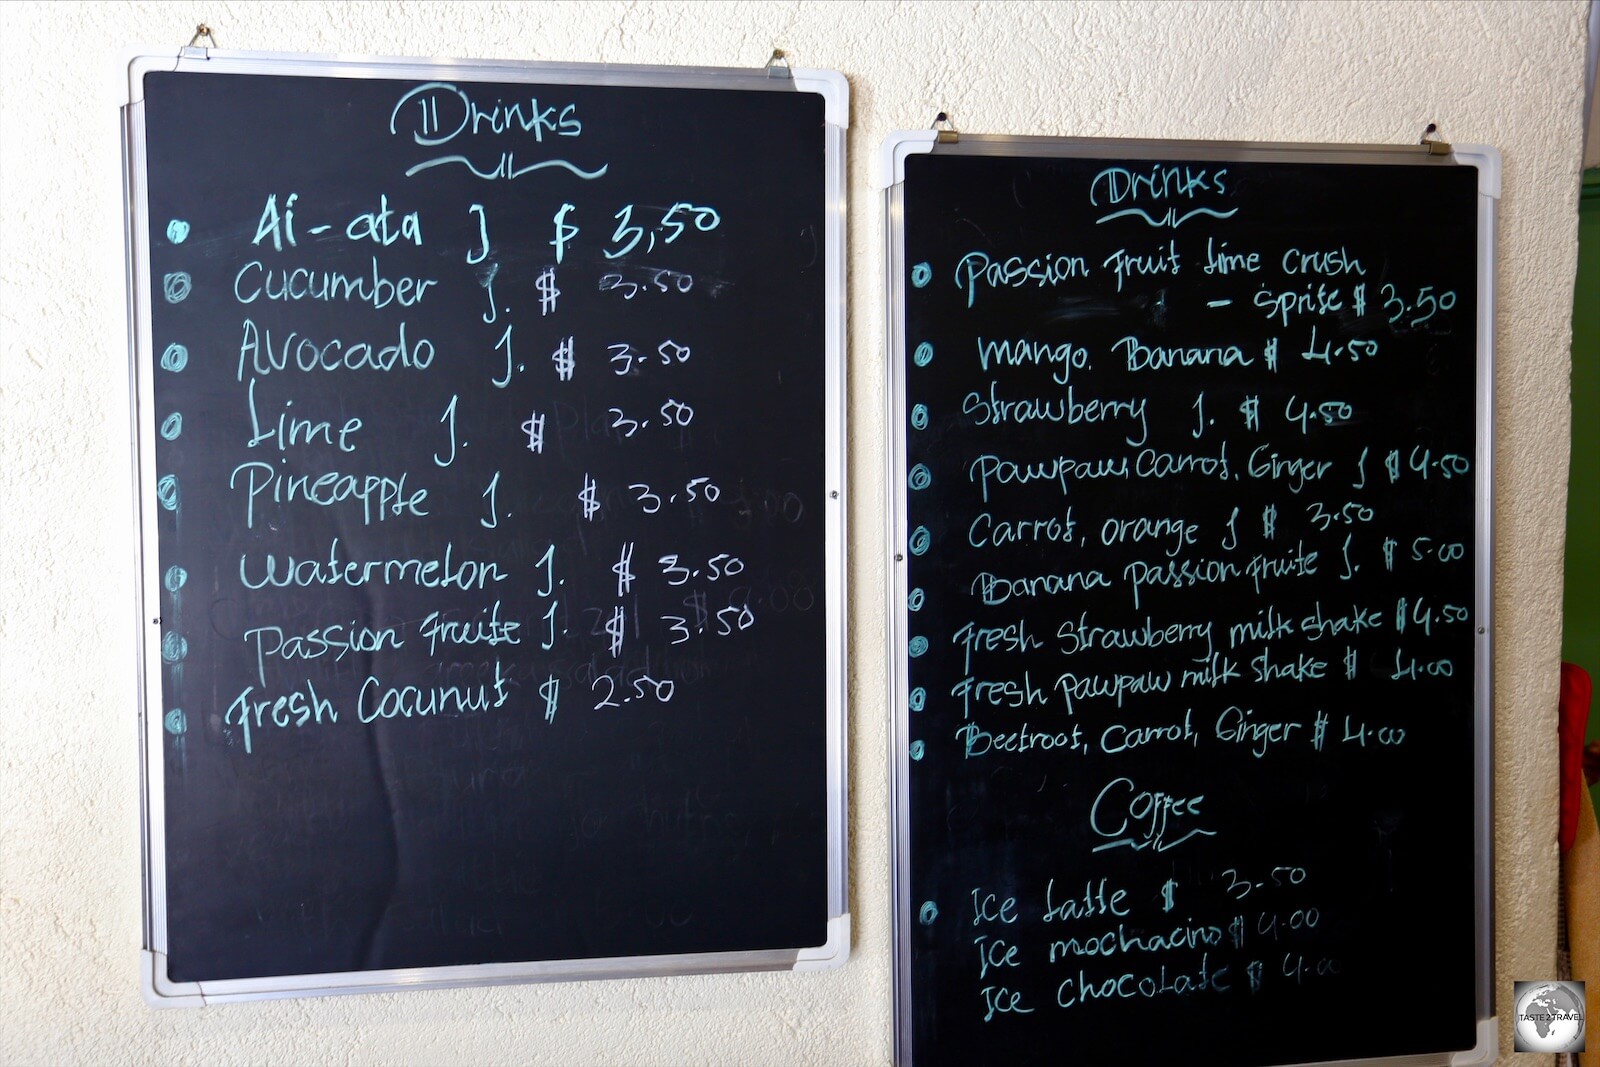 Drinks
Ai-ata J $ 3,50
Cucumber J. $ 3.50
Avocado J. $ 3.50
Lime J. $ 3.50
Pineapple J. $ 3.50
Watermelon J. $ 3.50
Passion Fruite J. $ 3.50
Fresh Cocunut $ 2.50
Drinks
Passion Fruit Lime crush
- Sprite $ 3.50
Mango. Banana $ 4.50
Strawberry J. $ 4.50
Pawpaw, Carrot, Ginger J $ 4.50
Carrot, orange J $ 3.50
Banana Passion fruite J. $ 5.00
Fresh Strawberry milk shake $ 4.50
Fresh Pawpaw milk shake $ 4.00
Beetroot, Carrot, Ginger $ 4.00
Coffee
Ice Latte $ 3.50
Ice mochacino $ 4.00
Ice chocolate $ 4.00
TASTE2TRAVEL